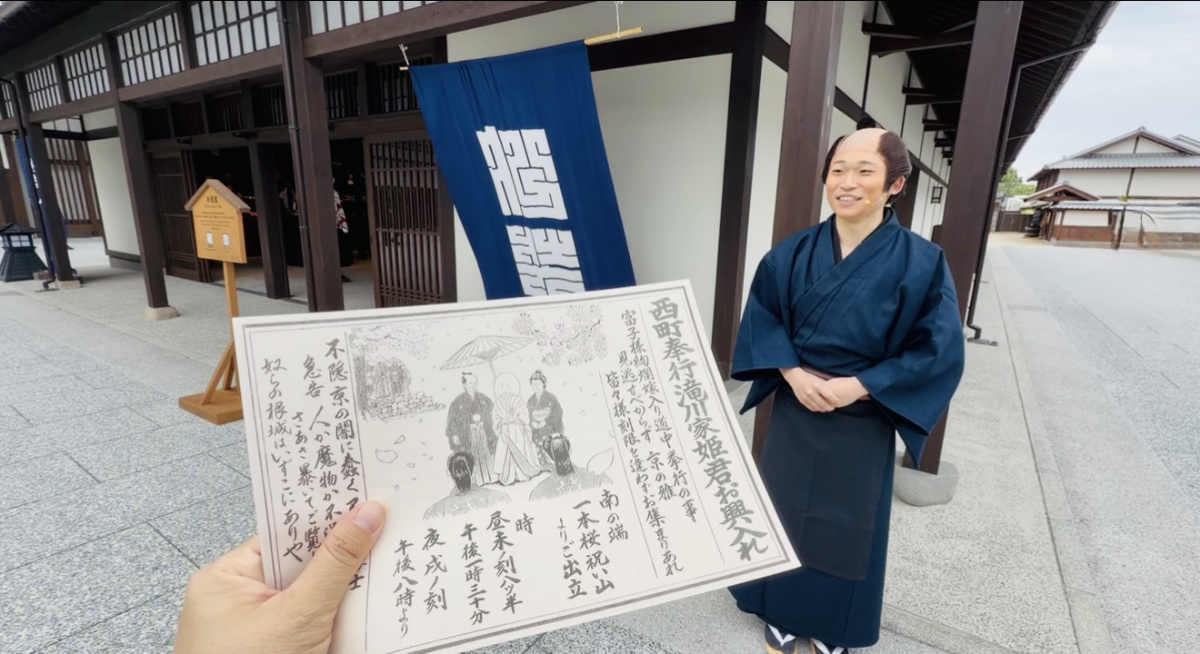 西町奉行滝川家姫君お輿入れ
富子様絢爛嫁入り道中 挙行の事
見逃すべからず 京の雅
皆々様刻限を違わずお集まりあれ
南の端
一本桜祝い山
よりご出立
時
昼未ノ刻八ツ半
午後一時三十分
夜戌ノ刻
午後八時より
不隠京の闇に蠢く
急告 人か魔物か不
さあさ暴いてご覧
奴らの根城はいずこにありや
士